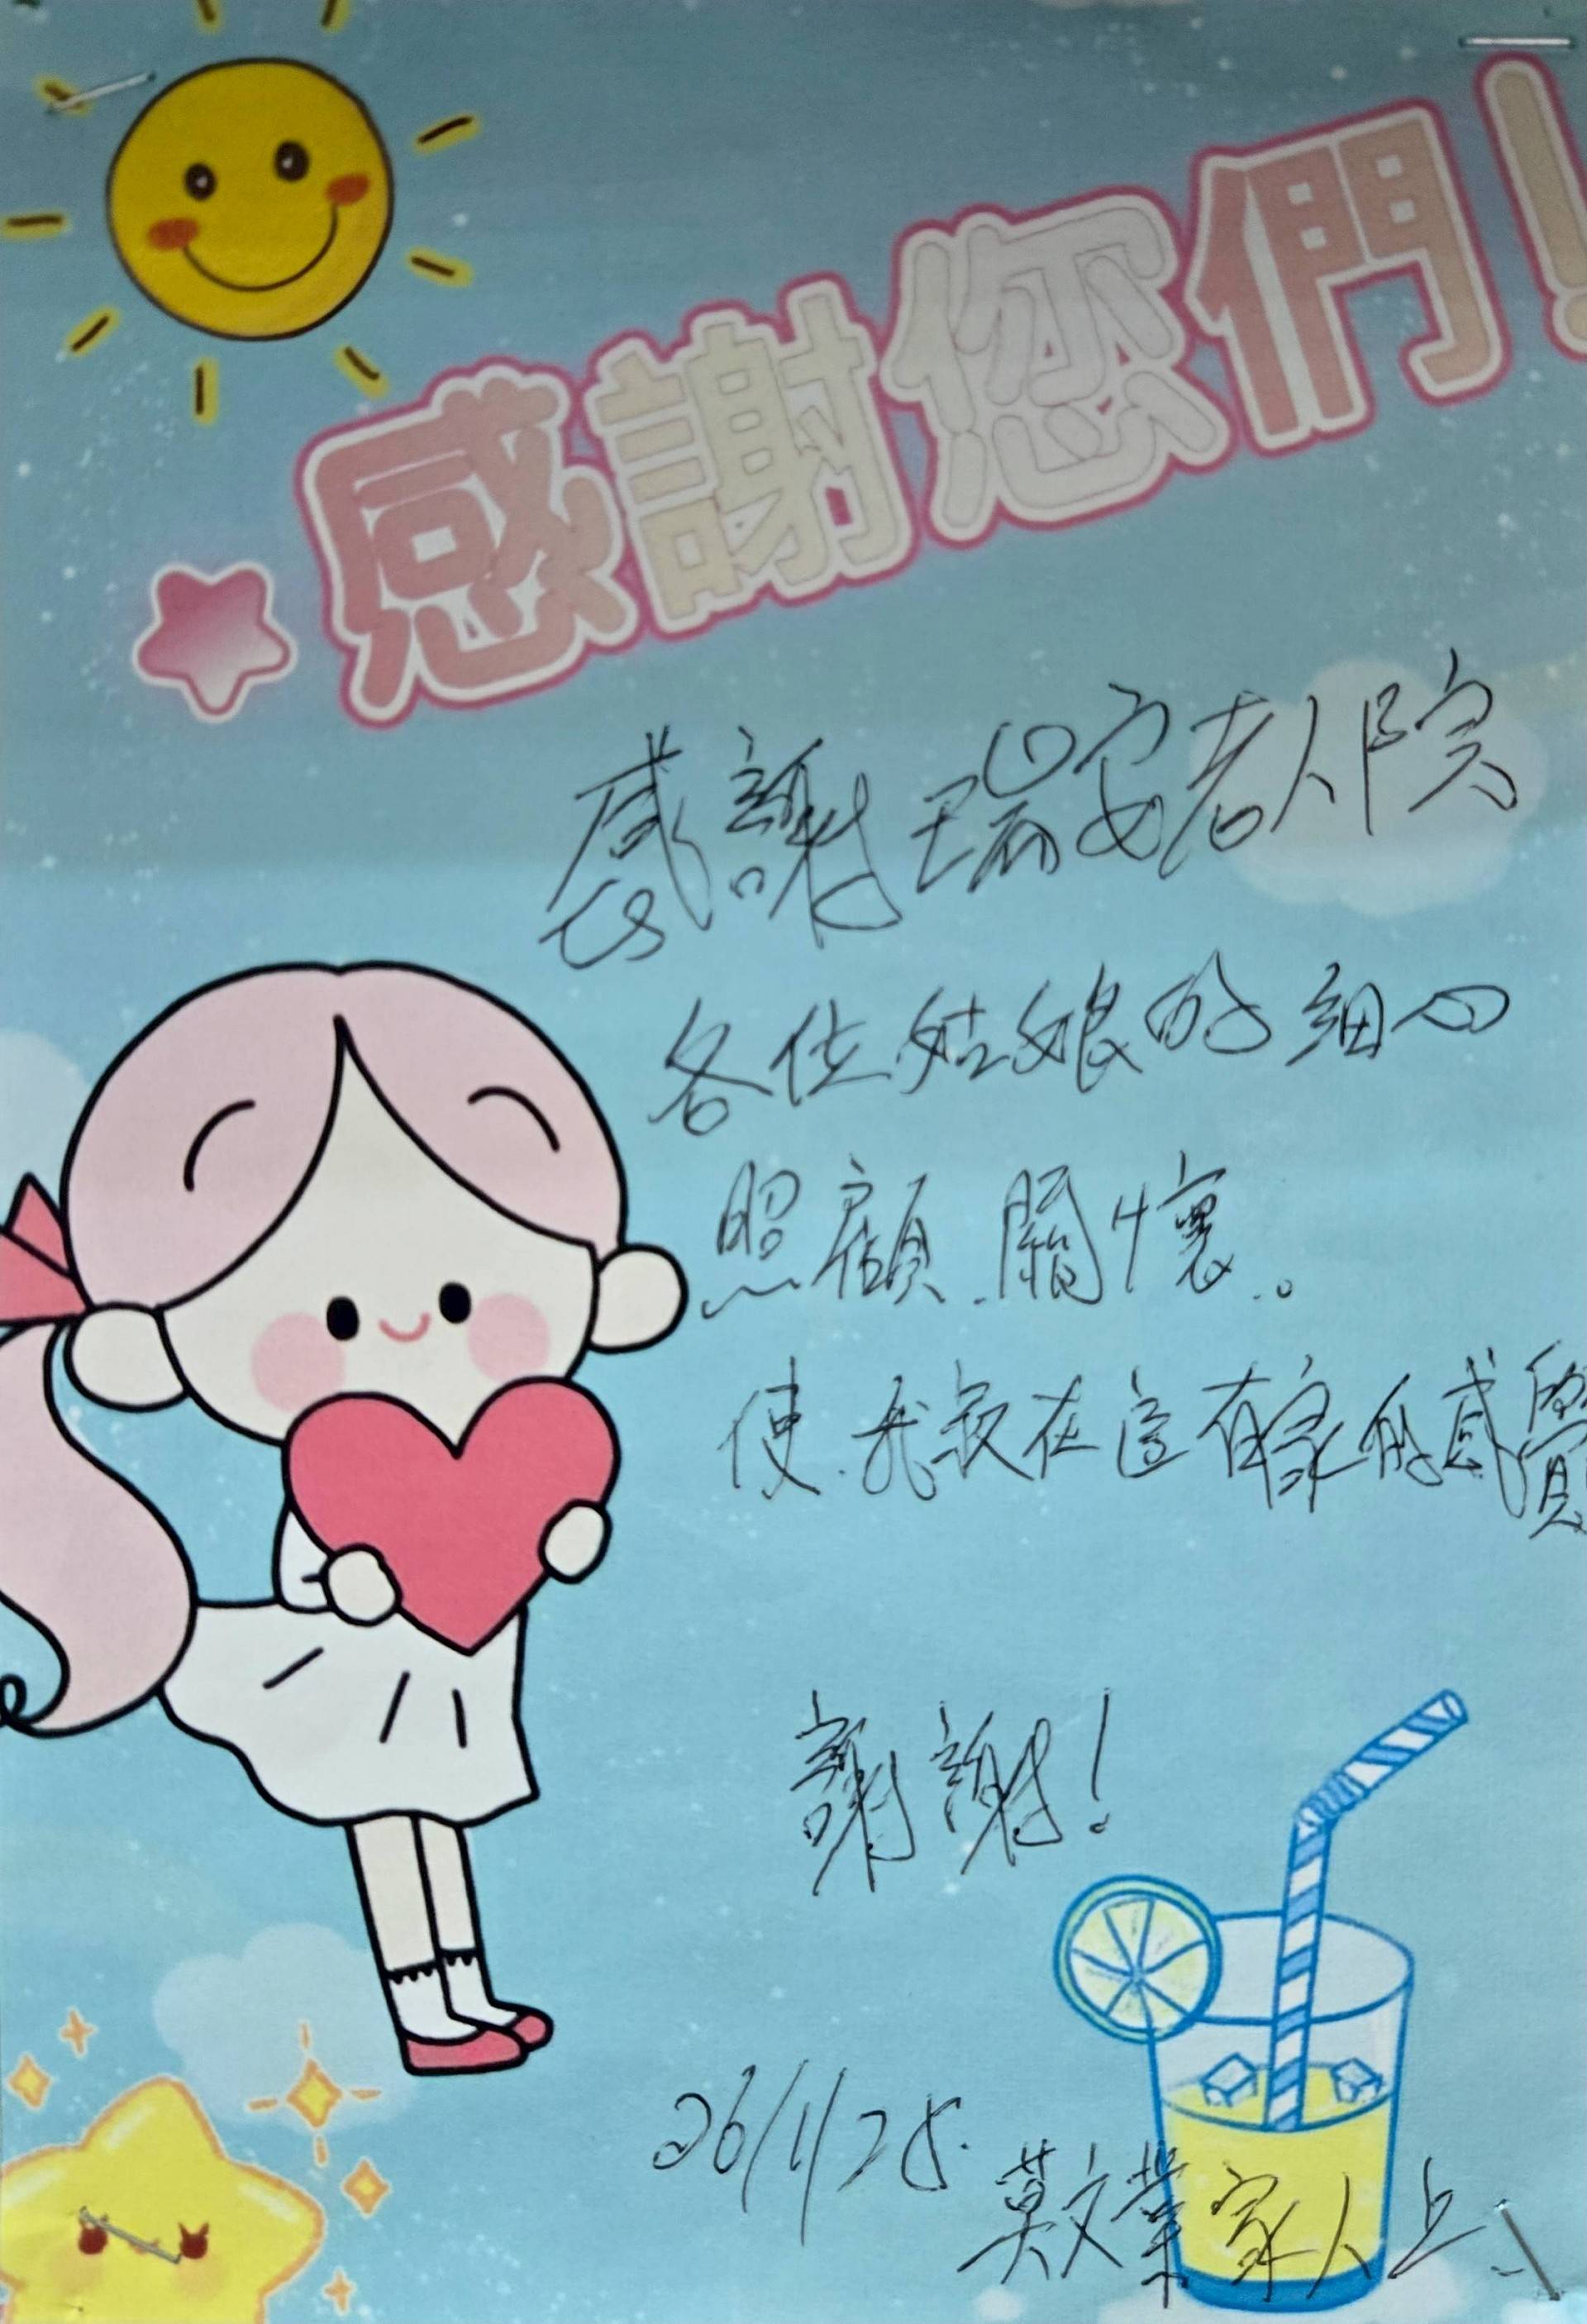 感謝您們！
感謝瑞安老人院
各位姑娘的細心
照顧.關懷。
使我叔在這有家的感覺
謝謝！
26/1/28.
莫文業家人上